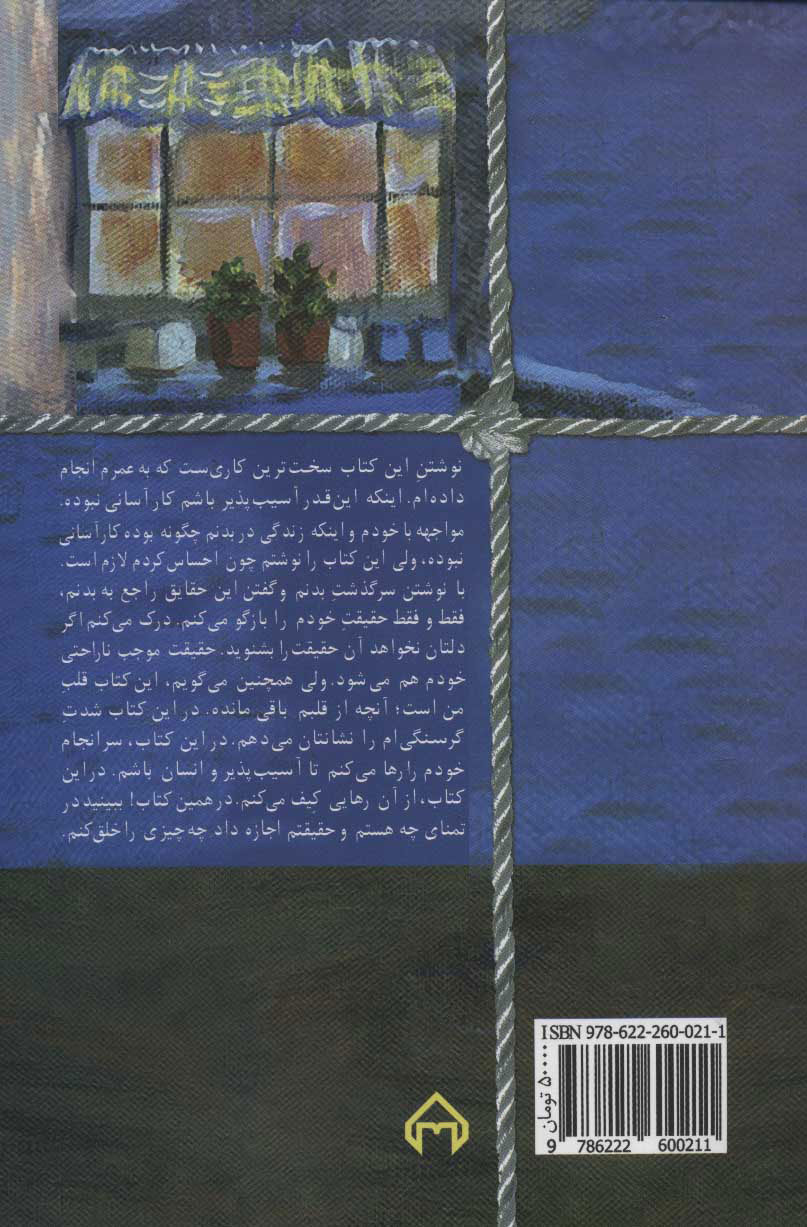 نوشتنِ این کتاب سخت‌ترین کاری‌ست که به عمرم انجام
داده‌ام. اینکه این‌قدر آسیب‌پذیر باشم کار آسانی نبوده.
مواجهه با خودم و اینکه زندگی در بدنم چگونه بوده کار آسانی
نبوده، ولی این کتاب را نوشتم چون احساس کردم لازم است.
با نوشتن سرگذشتِ بدنم و گفتن این حقایق راجع به بدنم،
فقط و فقط حقیقتِ خودم را بازگو می‌کنم. درک می‌کنم اگر
دلتان نخواهد آن حقیقت را بشنوید. حقیقت موجب ناراحتی
خودم هم می‌شود. ولی همچنین می‌گویم، این کتاب قلبِ
من است؛ آنچه از قلبم باقی مانده. در این کتاب شدتِ
گرسنگی‌ام را نشانتان می‌دهم. در این کتاب، سرانجام
خودم را رها می‌کنم تا آسیب‌پذیر و انسان باشم. در این
کتاب، از آن رهایی کیف می‌کنم. در همین کتاب! ببینید در
تمنای چه هستم و حقیقتم اجازه داد چه چیزی را خلق کنم.
ISBN 978-622-260-021-1
۵۰۰۰۰ تومان
9 786222 600211